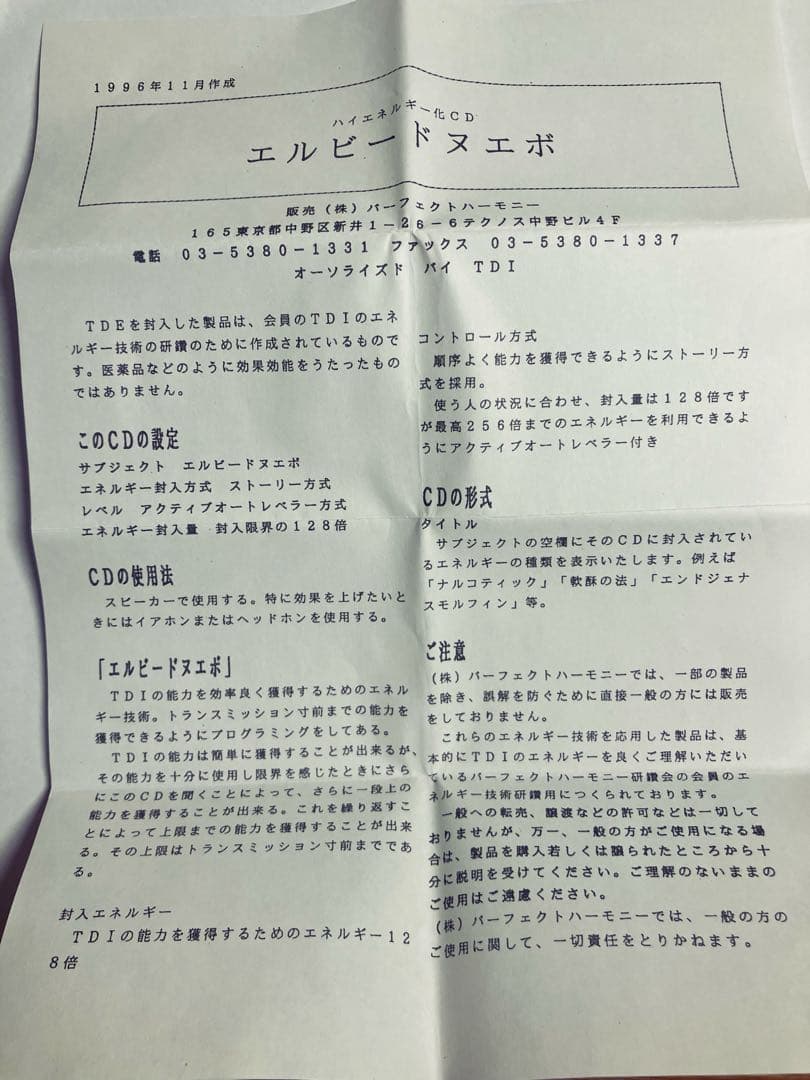 1996年11月作成
ハイエネルギー化CD
エルビードヌエボ
販売（株）パーフェクトハーモニー
165東京都中野区新井1－26－6テクノス中野ビル4F
電話　03－5380－1331　ファックス　03－5380－1337
オーソライズド　バイ　TDI
TDEを封入した製品は、会員のTDIのエネ
ルギー技術の研鑽のために作成されているもので
す。医薬品などのように効果効能をうたったもの
ではありません。
このCDの設定
サブジェクト　エルビードヌエボ
エネルギー封入方式　ストーリー方式
レベル　アクティブオートレベラー方式
エネルギー封入量　封入限界の128倍
CDの使用法
スピーカーで使用する。特に効果を上げたいと
きにはイアホンまたはヘッドホンを使用する。
「エルビードヌエボ」
TDIの能力を効率良く獲得するためのエネル
ギー技術。トランスミッション寸前までの能力を
獲得できるようにプログラミングをしてある。
TDIの能力は簡単に獲得することが出来るが、
その能力を十分に使用し限界を感じたときにさら
にこのCDを聞くことによって、さらに一段上の
能力を獲得することが出来る。これを繰り返すこ
とによって上限までの能力を獲得することが出来
る。その上限はトランスミッション寸前までであ
る。
封入エネルギー
TDIの能力を獲得するためのエネルギー12
8倍
コントロール方式
順序よく能力を獲得できるようにストーリー方
式を採用。
使う人の状況に合わせ、封入量は128倍です
が最高256倍までのエネルギーを利用できるよ
うにアクティブオートレベラー付き
CDの形式
タイトル
サブジェクトの空欄にそのCDに封入されてい
るエネルギーの種類を表示いたします。例えば
「ナルコティック」「軟酥の法」「エンドジェナ
スモルフィン」等。
ご注意
（株）パーフェクトハーモニーでは、一部の製品
を除き、誤解を防ぐために直接一般の方には販売
をしておりません。
これらのエネルギー技術を応用した製品は、基
本的にTDIのエネルギーを良くご理解いただい
ているパーフェクトハーモニー研鑽会の会員のエ
ネルギー技術研鑽用につくられております。
一般への転売、譲渡などの許可などは一切して
おりませんが、万一、一般の方がご使用になる場
合は、製品を購入若しくは譲られたところから十
分に説明を受けてください。ご理解のないままの
ご使用はご遠慮ください。
（株）パーフェクトハーモニーでは、一般の方の
ご使用に関して、一切責任をとりかねます。